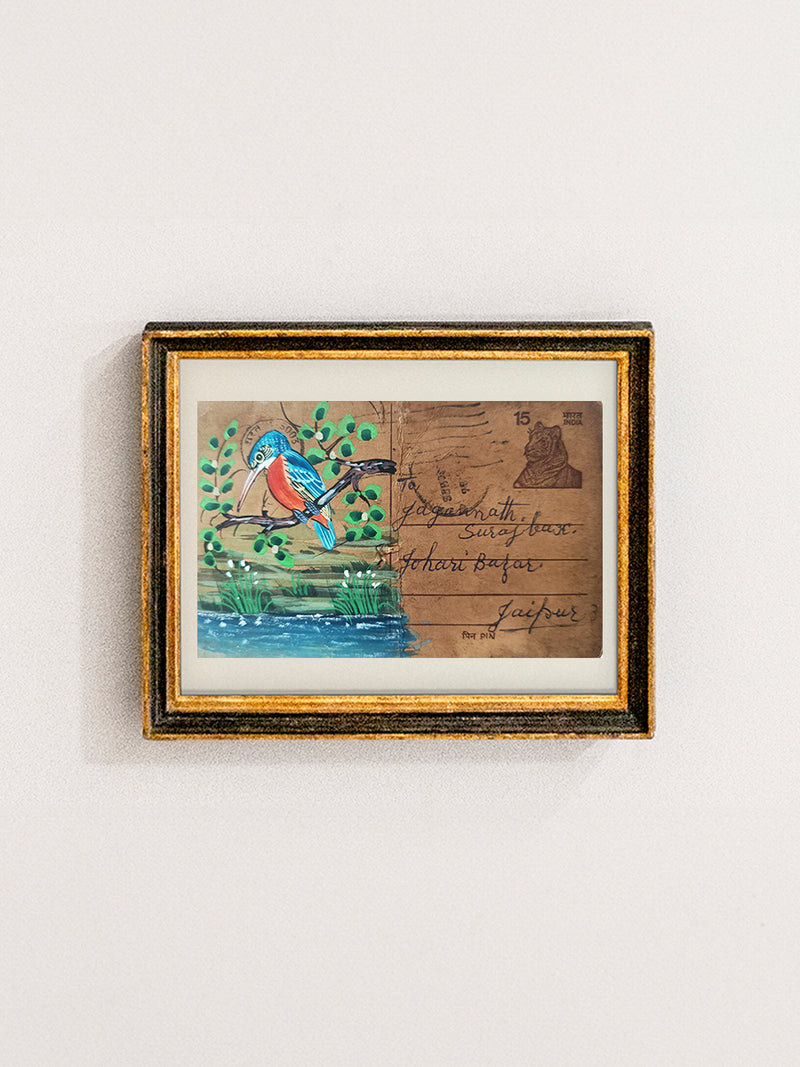 15 भारत
INDIA
भारत
To
Jagannath.
Suraj bax.
Johari Bazar.
Jaipur 3
पिन PIN